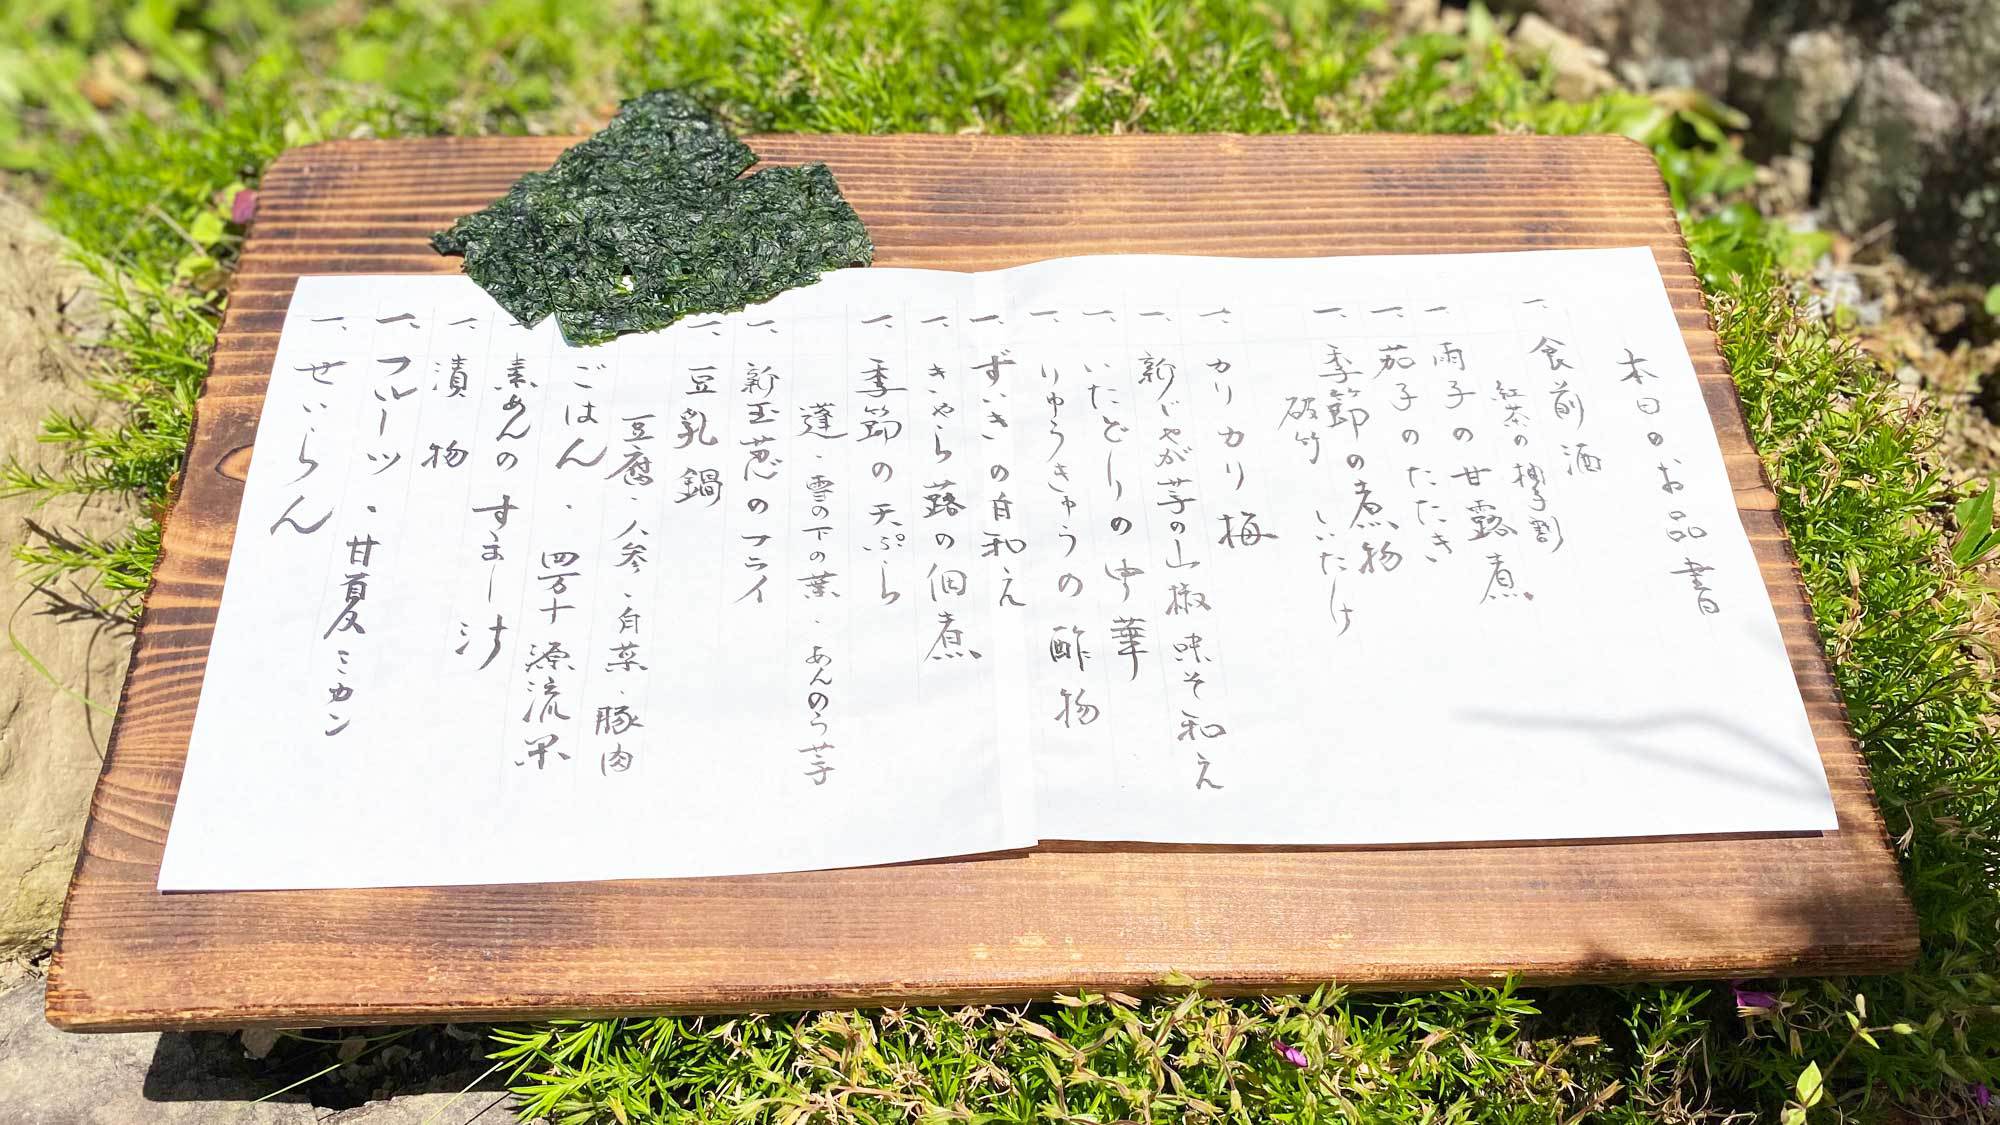 本日のお品書
一、食前酒
紅茶の柚子割
一、雨子の甘露煮
一、茄子のたたき
一、季節の煮物
破竹 しいたけ
一、カリカリ梅
一、新じゃが芋の山椒味そ和え
一、いたどりの中華
一、りゅうきゅうの酢物
一、ずいきの白和え
一、きゃら蕗の佃煮
一、季節の天ぷら
蓬・雪の下の葉・あんのう芋
一、新玉葱のフライ
一、豆乳鍋
豆腐・人参・白菜・豚肉
ごはん・四万十源流米
素あんのすまし汁
一、漬物
一、フルーツ・甘夏ミカン
一、せいらん